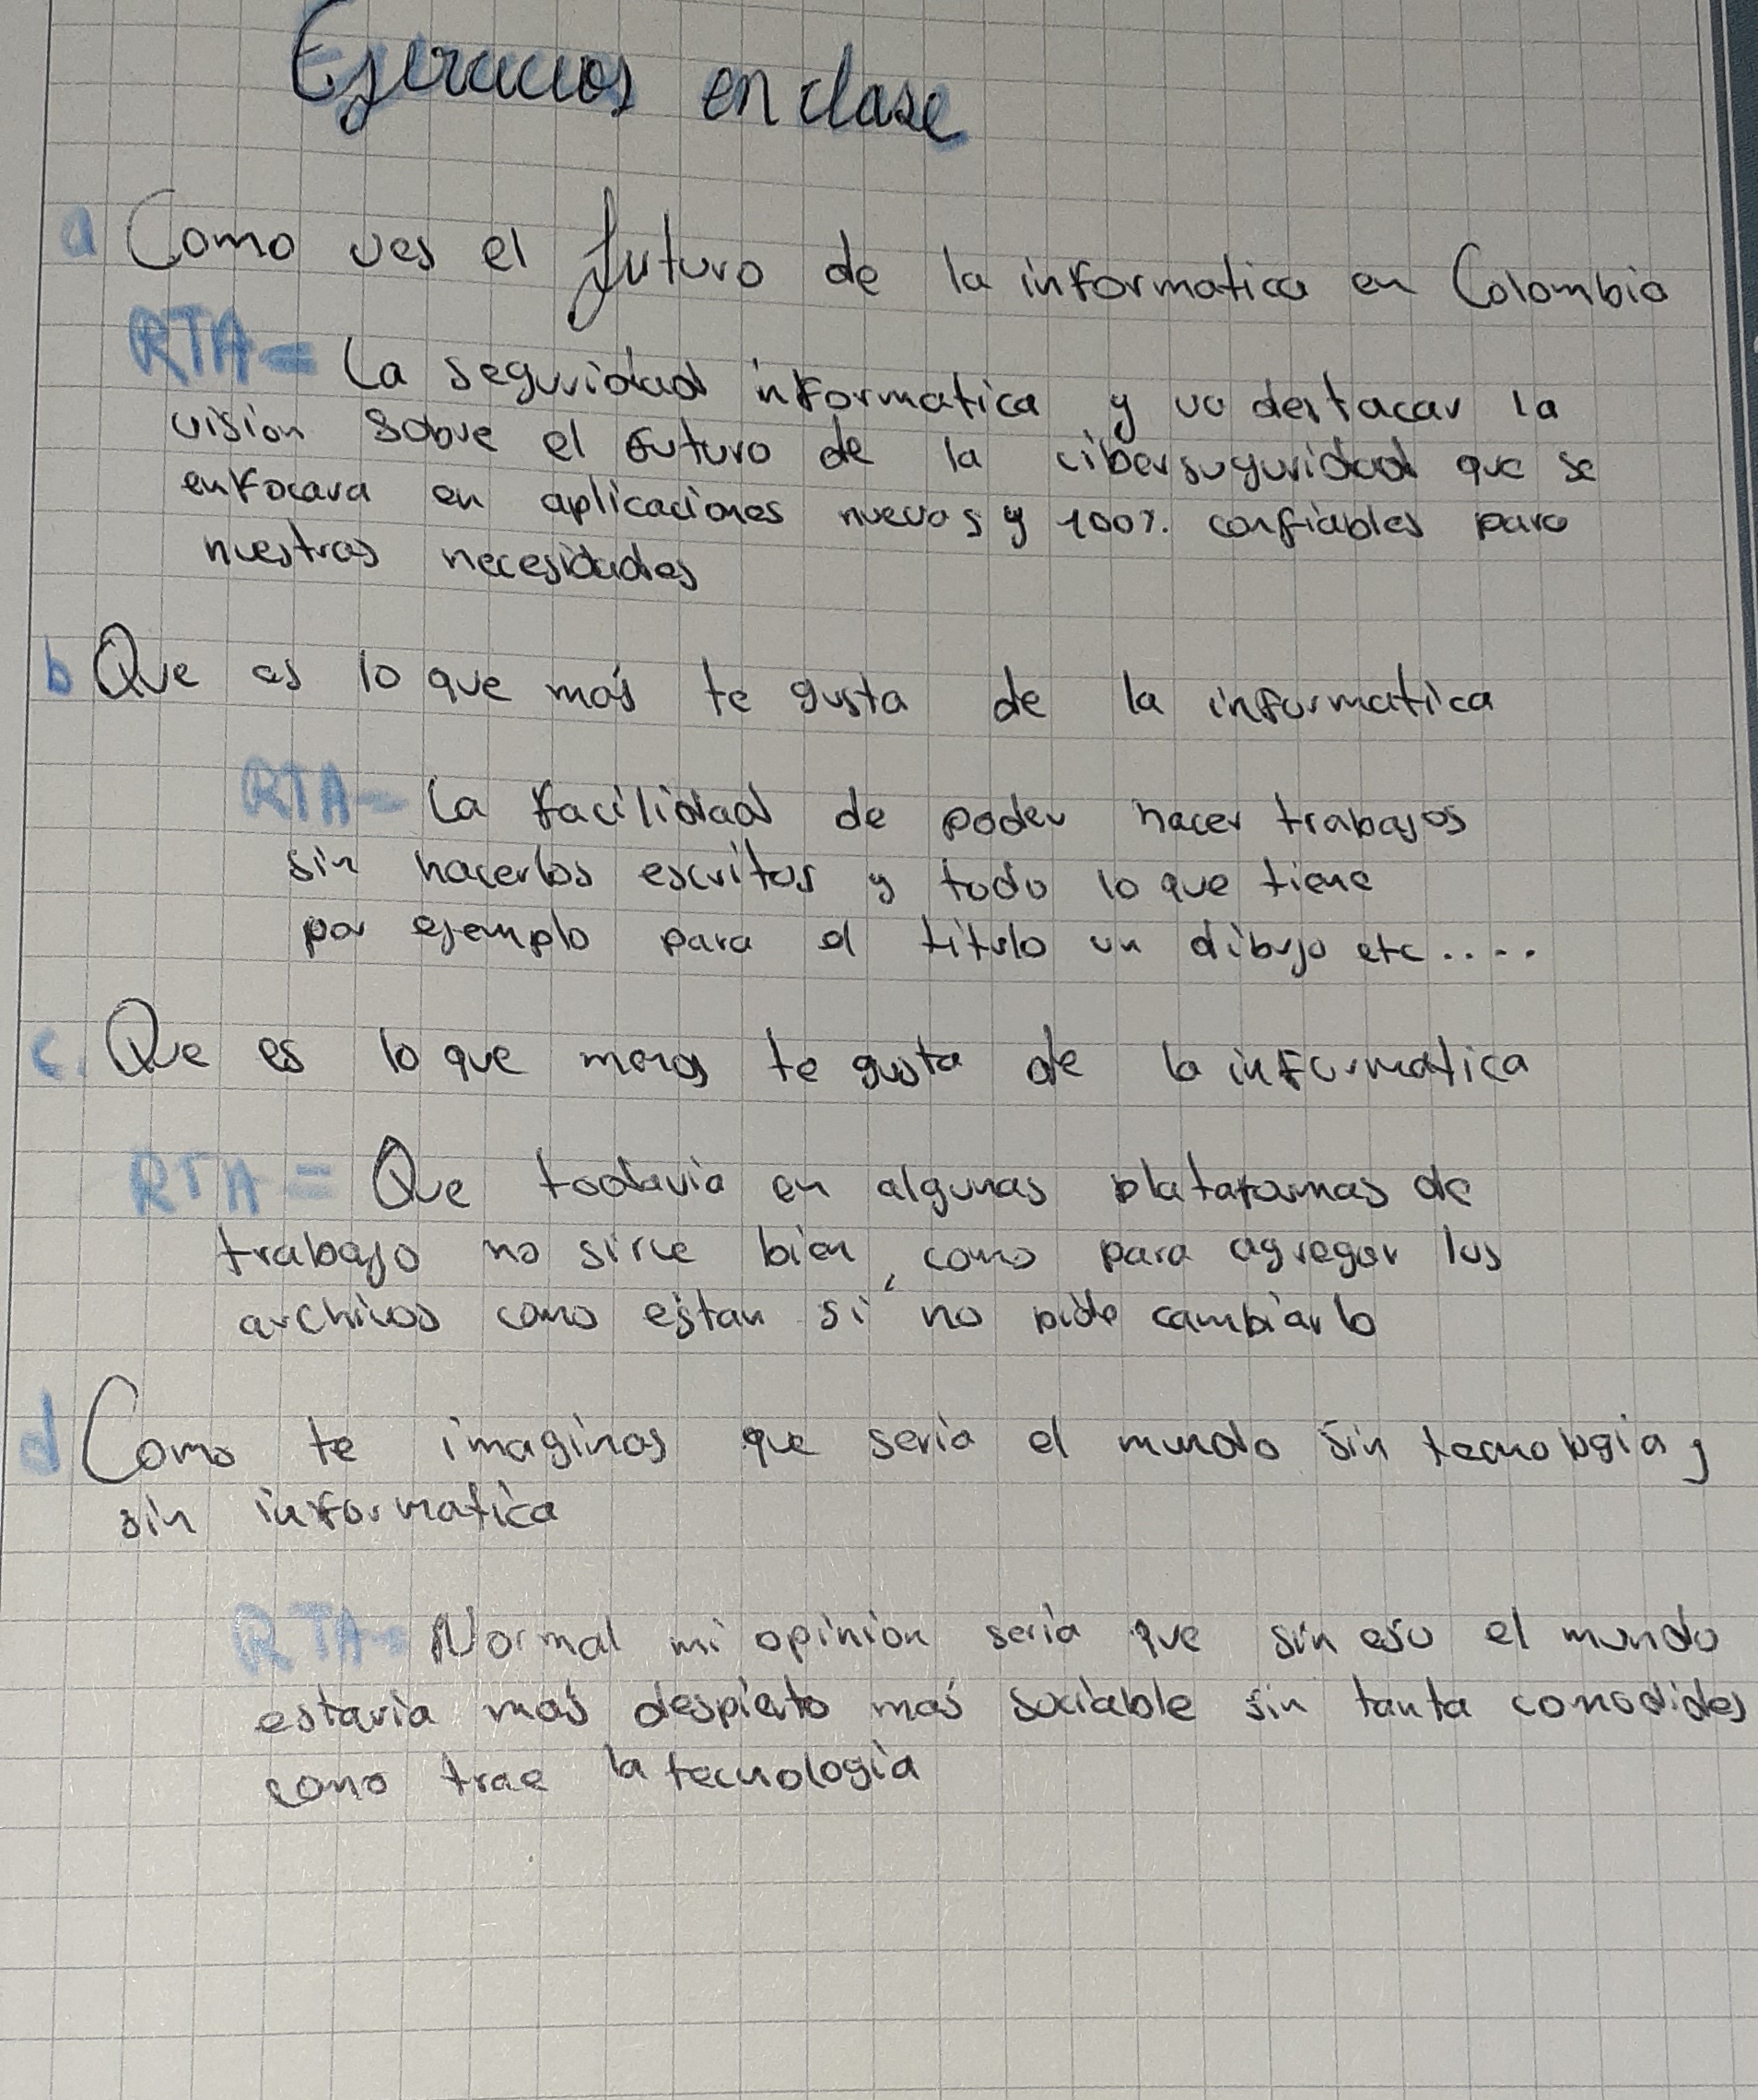 Ejercicios en clase
a Como ves el futuro de la informatica en Colombia
RTA = La seguridad informatica y va destacar la
visión sobre el futuro de la cibersuguridad que se
enfocara en aplicaciones nuevas y 100% confiables para
nuestras necesidades
b Que es lo que más te gusta de la informatica
RTA = La facilidad de poder hacer trabajos
sin hacerlos escritos y todo lo que tiene
por ejemplo para el titulo un dibujo etc.....
c. Que es lo que menos te gusta de la informatica
RTA = Que todavia en algunas plataformas de
trabajo no sirve bien, como para agregar los
archivos como estan si no pide cambiarlo
d Como te imaginas que seria el mundo sin tecnologia y
sin informatica
RTA = Normal mi opinión seria que sin eso el mundo
estaria más despierto más sociable sin tanta comodides
como trae la tecnologia